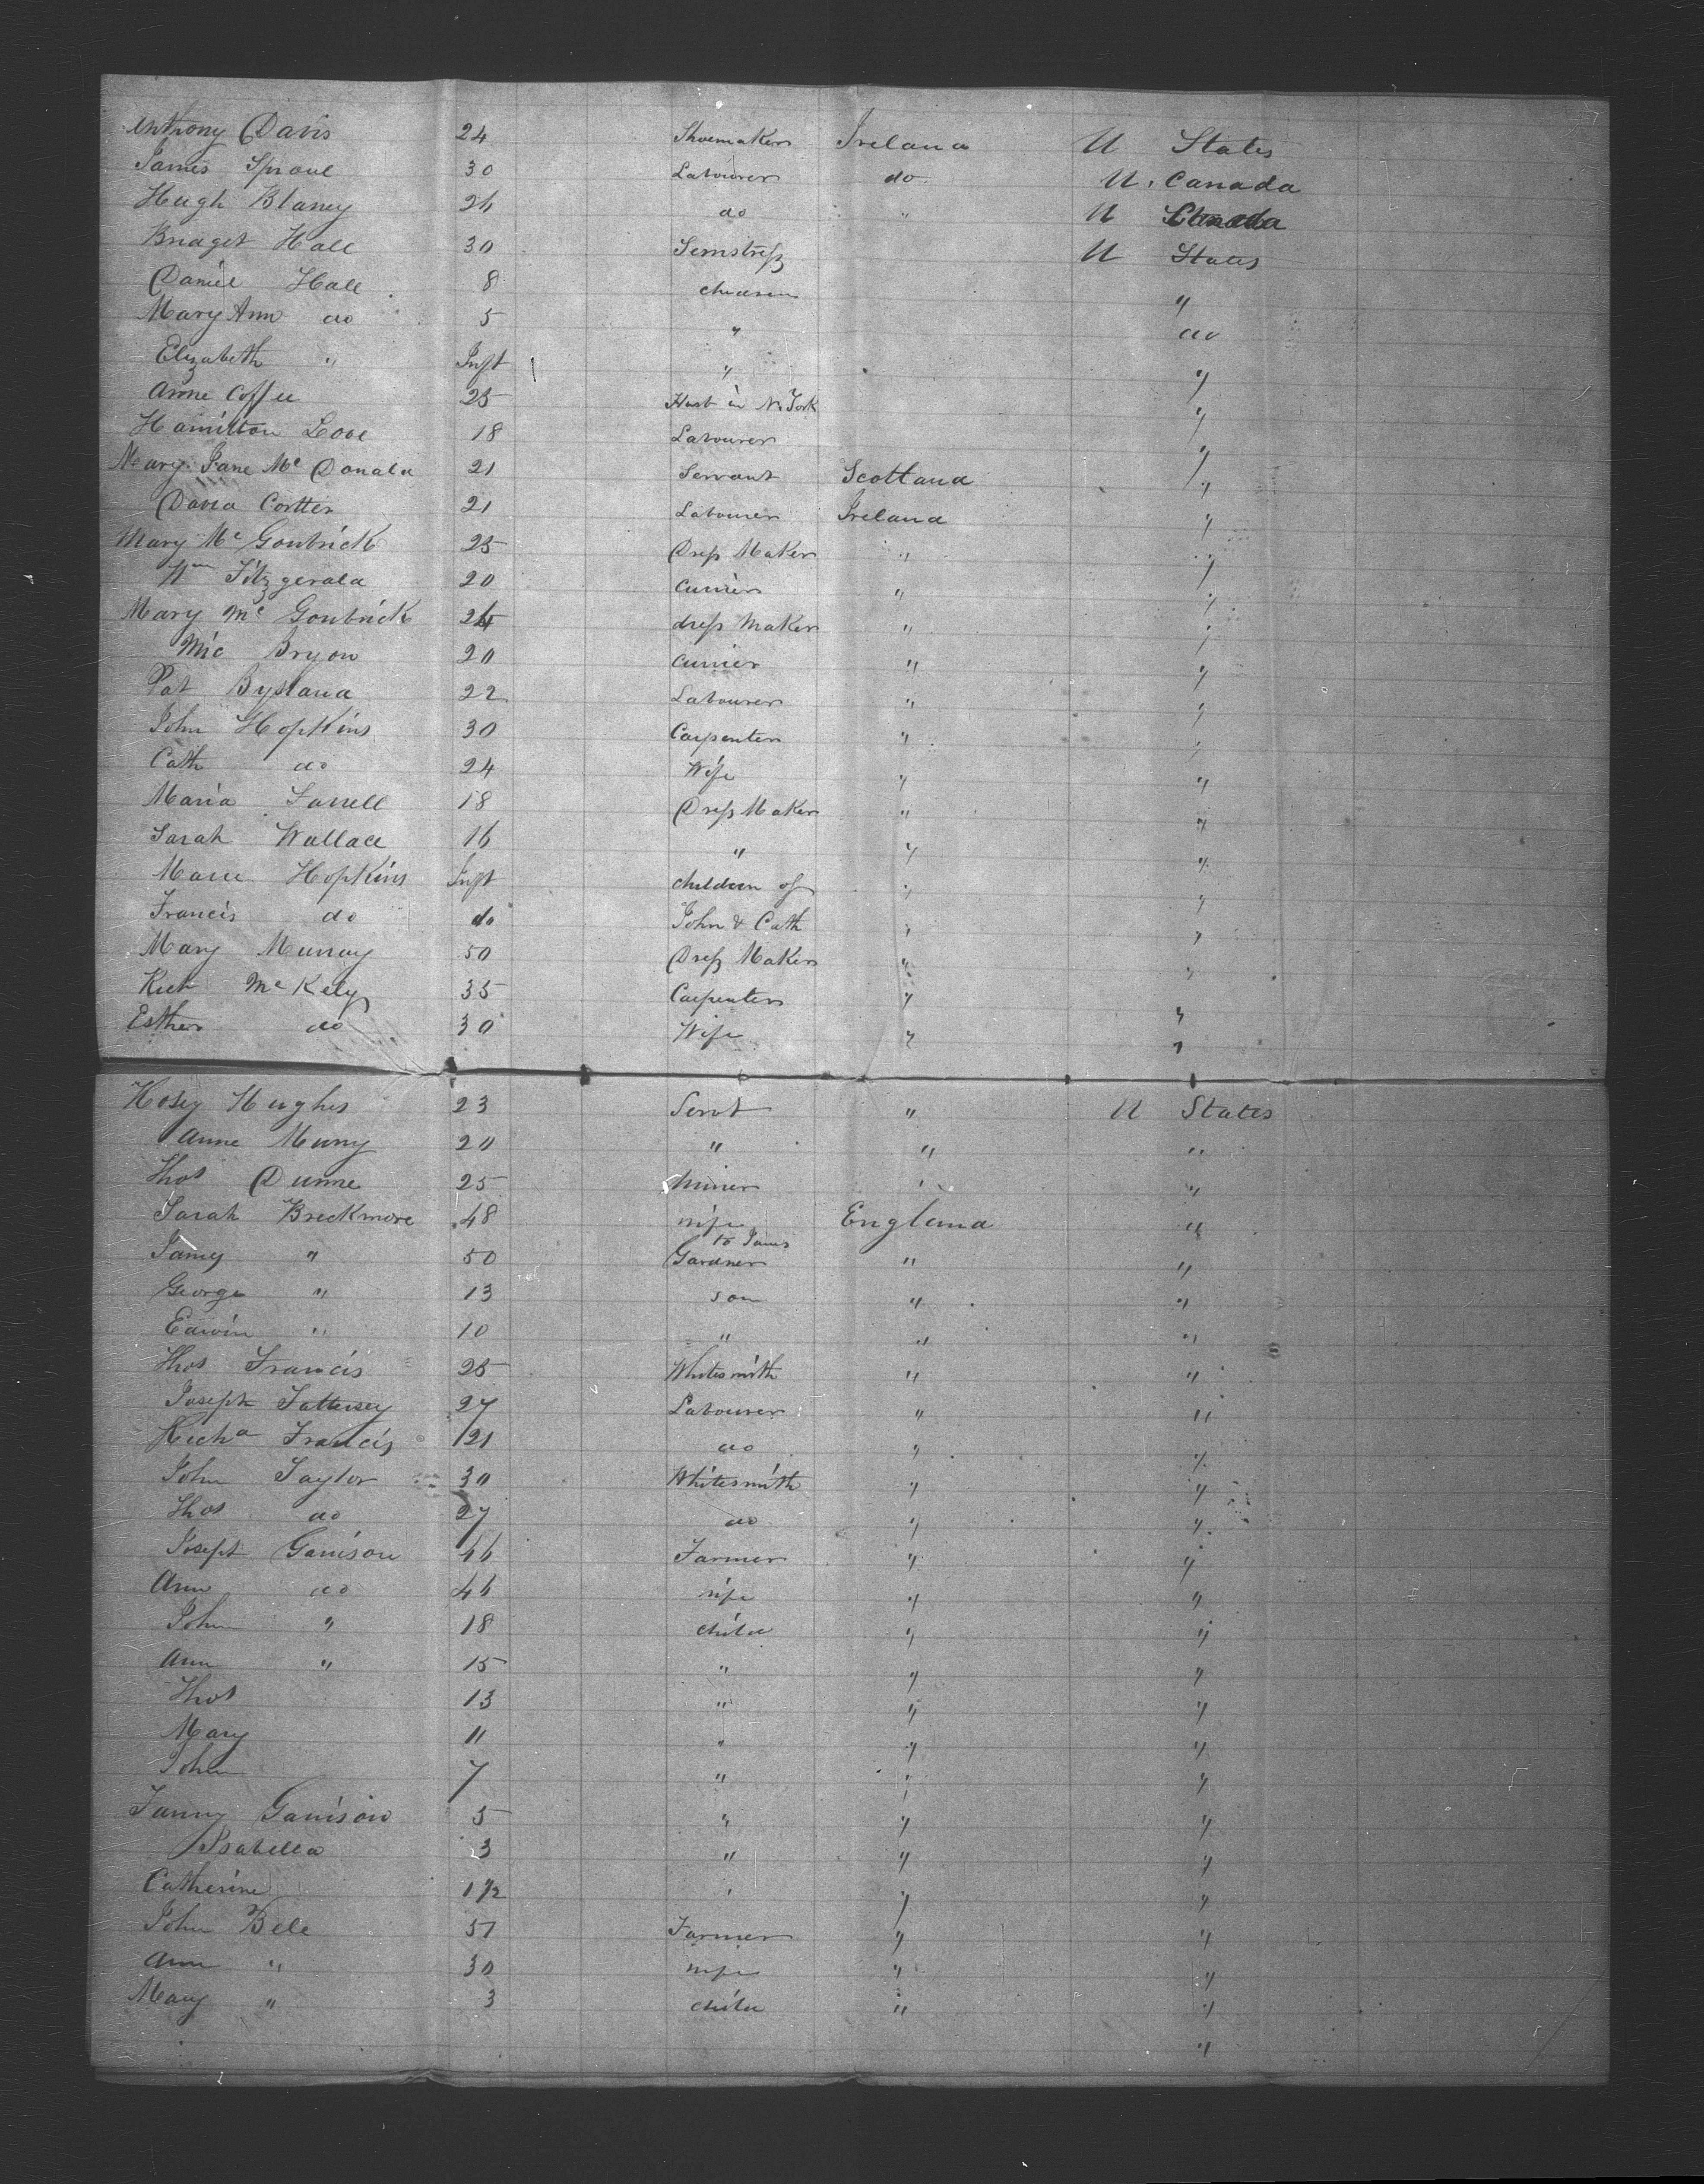 Anthony Davis 24 Shoemaker Ireland U States
James Sproul 30 Labourer do U. Canada
Hugh Blaney 26 do " U Canada
Bridget Hall 30 Semstress U States
Daniel Hall 8 children "
Mary Ann do 5 " do
Elizabeth " Inft " "
Anne Coffee 25 Husb in N. York "
Hamilton Love 18 Labourer "
Mary Jane Mc Donald 21 Servant Scotland "
David Cortter 21 Labourer Ireland "
Mary Mc Gontrick 25 Dress Maker " "
Wm Fitzgerald 20 Currier " "
Mary Mc Gontrick 24 dress Maker " "
Mic Bryon 20 Currier " "
Pat Bysland 22 Labourer " "
John Hopkins 30 Carpenter " "
Cath do 24 Wife " "
Maria Farrell 18 Dress Maker " "
Sarah Wallace 16 " " "
Marie Hopkins Inft children of " "
Francis do do John & Cath " "
Mary Murray 50 Dress Maker " "
Rich Mc Kely 35 Carpenter " "
Esther do 30 Wife " "
Hosey Hughes 23 Servt " U States
Anne Murry 20 " " "
Thos Dunne 25 Miner " "
Sarah Breckmore 48 wife to James England "
James " 50 Gardner " "
George " 13 son " "
Edwin " 10 " " "
Thos Francis 25 Whitesmith " "
Joseph Tattersey 27 Labourer " "
Richd Francis 21 do " "
John Taylor 30 Whitesmith " "
Thos do 27 do " "
Joseph Garrison 46 Farmer " "
Ann do 46 wife " "
John " 18 child " "
Ann " 15 " " "
Thos 13 " " "
Mary 11 " " "
John 7 " " "
Fanny Garrison 5 " " "
Isabella 3 " " "
Catherine 1 1/2 " " "
John Bell 51 Farmer " "
Ann " 30 wife " "
Mary " 3 child " "
"